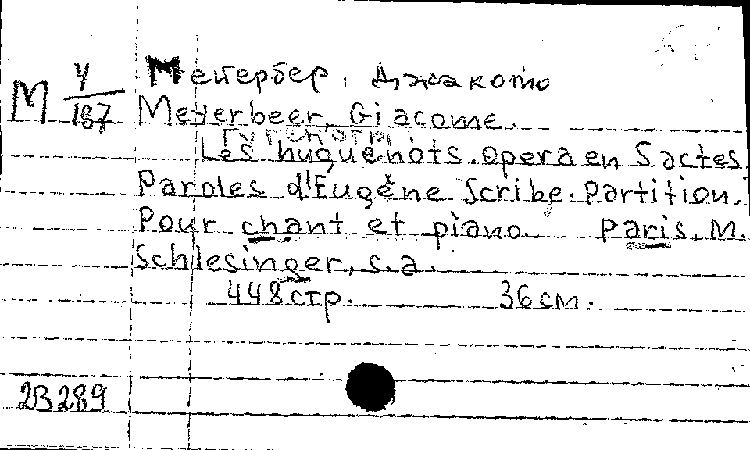 Мейербер, Джакомо
М У/187 Meyerbeer, Giacome.
Гугеноты
Les huguenots. Opera en 5 actes
Paroles d'Eugène Scribe. Partition.
Pour chant et piano. Paris, M.
Schlesinger, s.a.
448 стр. 36 см.
2В289